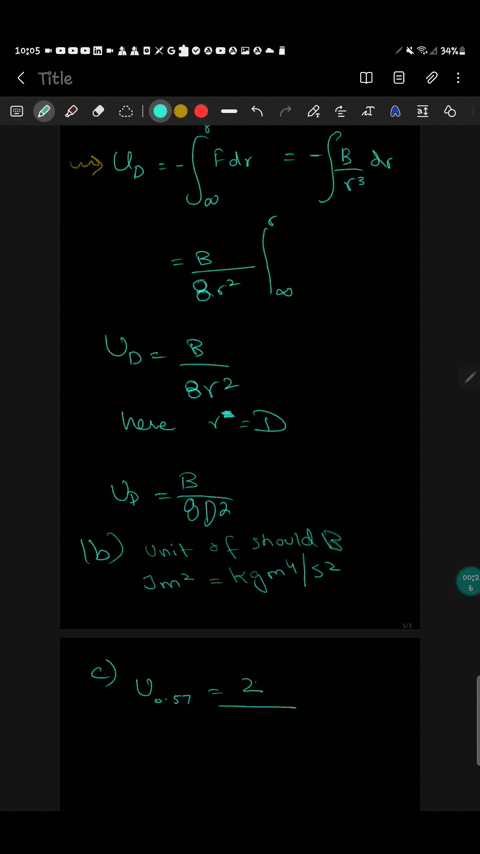 10:05 34%
Title
⇒ U_D = -∫_∞^r F dr = -∫ B/r³ dr
= B/8r² |_∞^r
U_D = B/8r²
here r = D
U_D = B/8D²
(b) unit of should B
Jm² = kgm⁴/s²
1/3
00:26
c) U_0.57 = 2